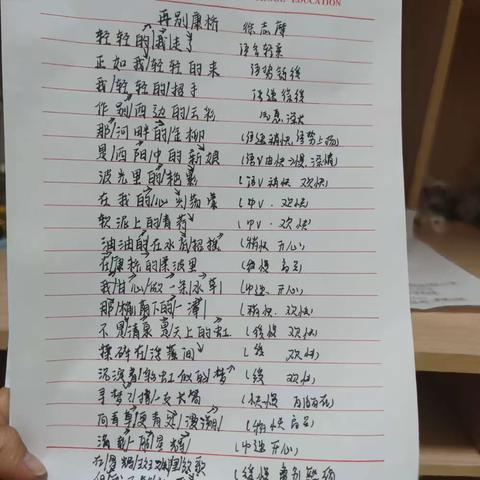 EDUCATION
再别康桥 徐志摩
轻轻的我走了 语言轻柔
正如我轻轻的来 语势舒缓
我轻轻的招手 语速缓缓
作别西边的云彩
那河畔的金柳 (语速稍快,语势上扬)
是夕阳中的新娘
波光里的艳影 (语V稍快 欢快)
在我的心头荡漾 (中V.欢快)
软泥上的青荇 (中V.欢快)
油油的在水底招摇 (稍快 开心)
在康桥的柔波里
我甘心做一条水草 (中速 开心)
那榆荫下的一潭 (稍快.欢快)
不是清泉 是天上的虹 (缓慢 欢快)
揉碎在浮藻间 (缓 欢快)
沉淀着彩虹似的梦 (缓 欢快)
寻梦 撑一支长篙
向青草更青处漫溯
满载一船星辉 (中速 开心)
在星辉斑斓里放歌